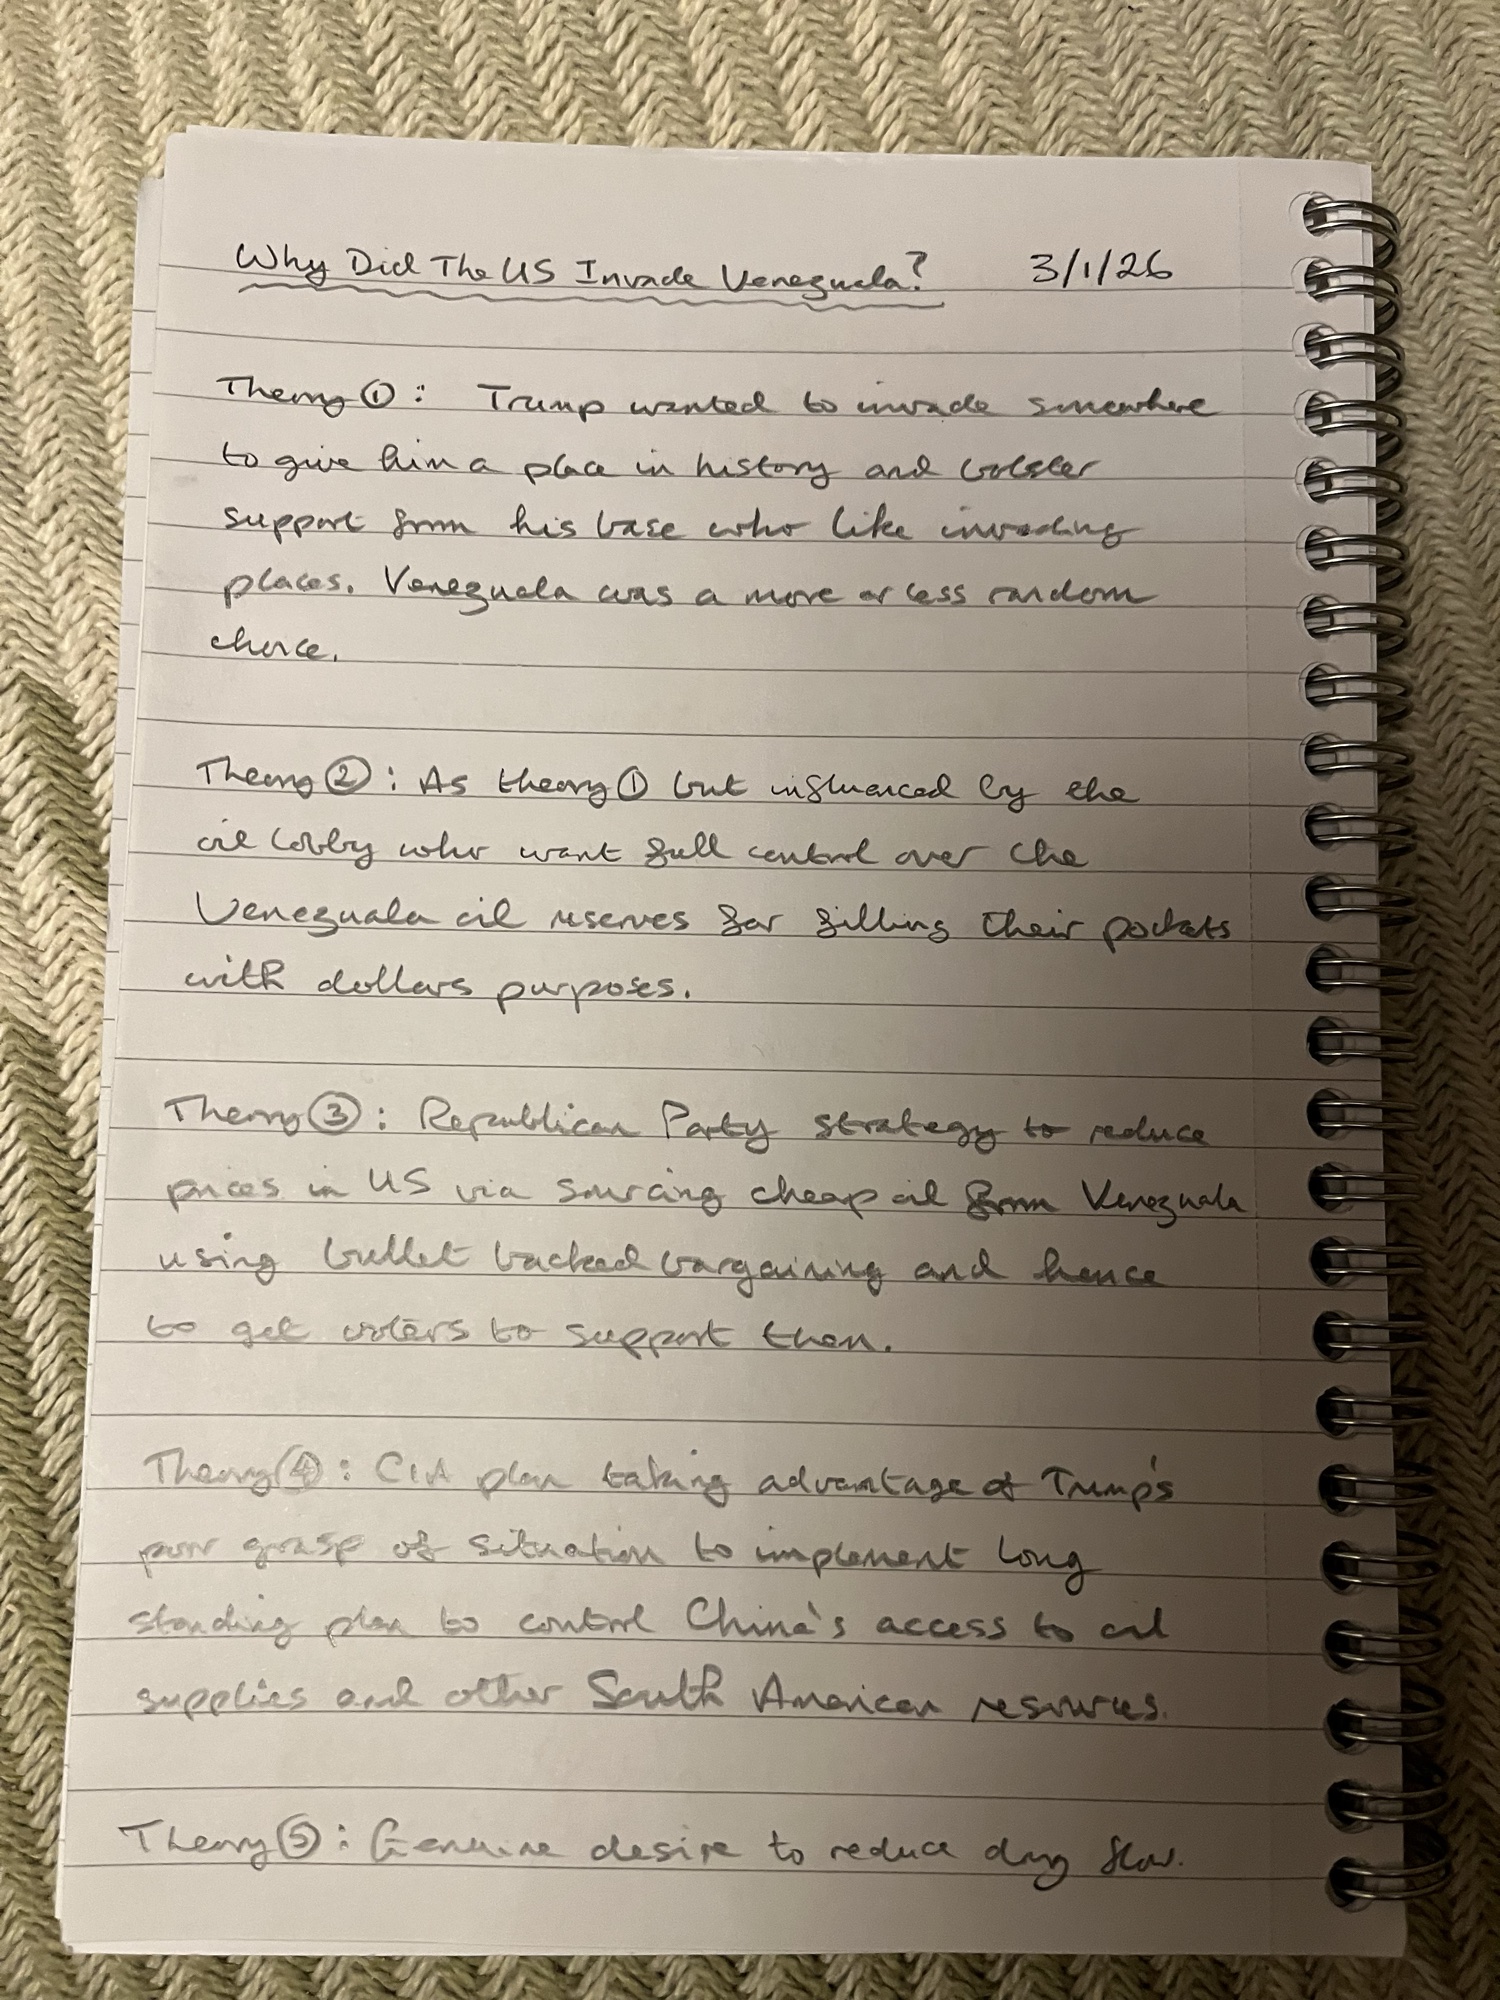 Why Did The US Invade Venezuala? 3/1/26
Theory ①: Trump wanted to invade somewhere
to give him a place in history and bolster
support from his base who like invading
places. Venezuala was a more or less random
choice.
Theory ②: As theory ① but influenced by the
oil lobby who want full control over the
Venezuala oil reserves for filling their pockets
with dollars purposes.
Theory ③: Republican Party strategy to reduce
prices in US via sourcing cheap oil from Venezuala
using bullet backed bargaining and hence
to get voters to support them.
Theory ④: CIA plan taking advantage of Trump's
poor grasp of situation to implement long
standing plan to control China's access to oil
supplies and other South American resources.
Theory ⑤: Genuine desire to reduce drug flow.